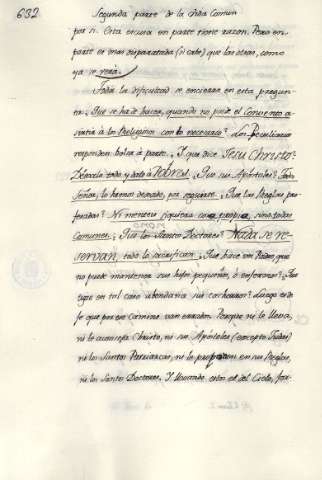 632
Segunda parte de la Vida Comun
por si. Esta escusa en parte tiene razon. Pero en
parte es mas disparatada (si cabe) que las otras, como
ya se verá.
Toda la dificultad se encierra en esta pregun-
ta. Que se ha de hacer, quando no puede el Convento a-
sistir à los Religiosos con lo necesario? Los Peculiares
responden bolsa à parte. Y que dice Jesu Christo?
Dejarlo todo y darlo à Pobres. Que sus Apóstoles? Todo
Señor, lo hemos dejado, por seguirte. Que las Reglas pro-
fesadas? Ni menteis siquiera cosa propia, sino todas
Comunes. Que los Santos Doctores? Nada se re-
servan, todo lo sacrifican. Que hace un Padre, que
no puede mantener sus hijos pequeños, ò enfermos? Que
tigre en tal caso abandona sus cachorros? Luego es de
fe que por ese Camino van errados. Porque ni le lleva,
ni le aconseja Christo, ni sus Apóstoles (excepto Judas)
ni los Santos Patriarcas, ni le proponen en sus Reglas,
ni los Santos Doctores. Y llevando estos el del Cielo, for-